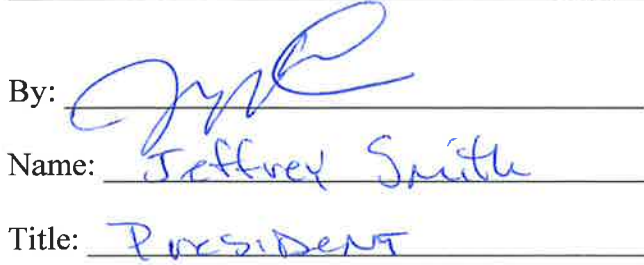 By:
Name: Jeffrey Smith
Title: PRESIDENT